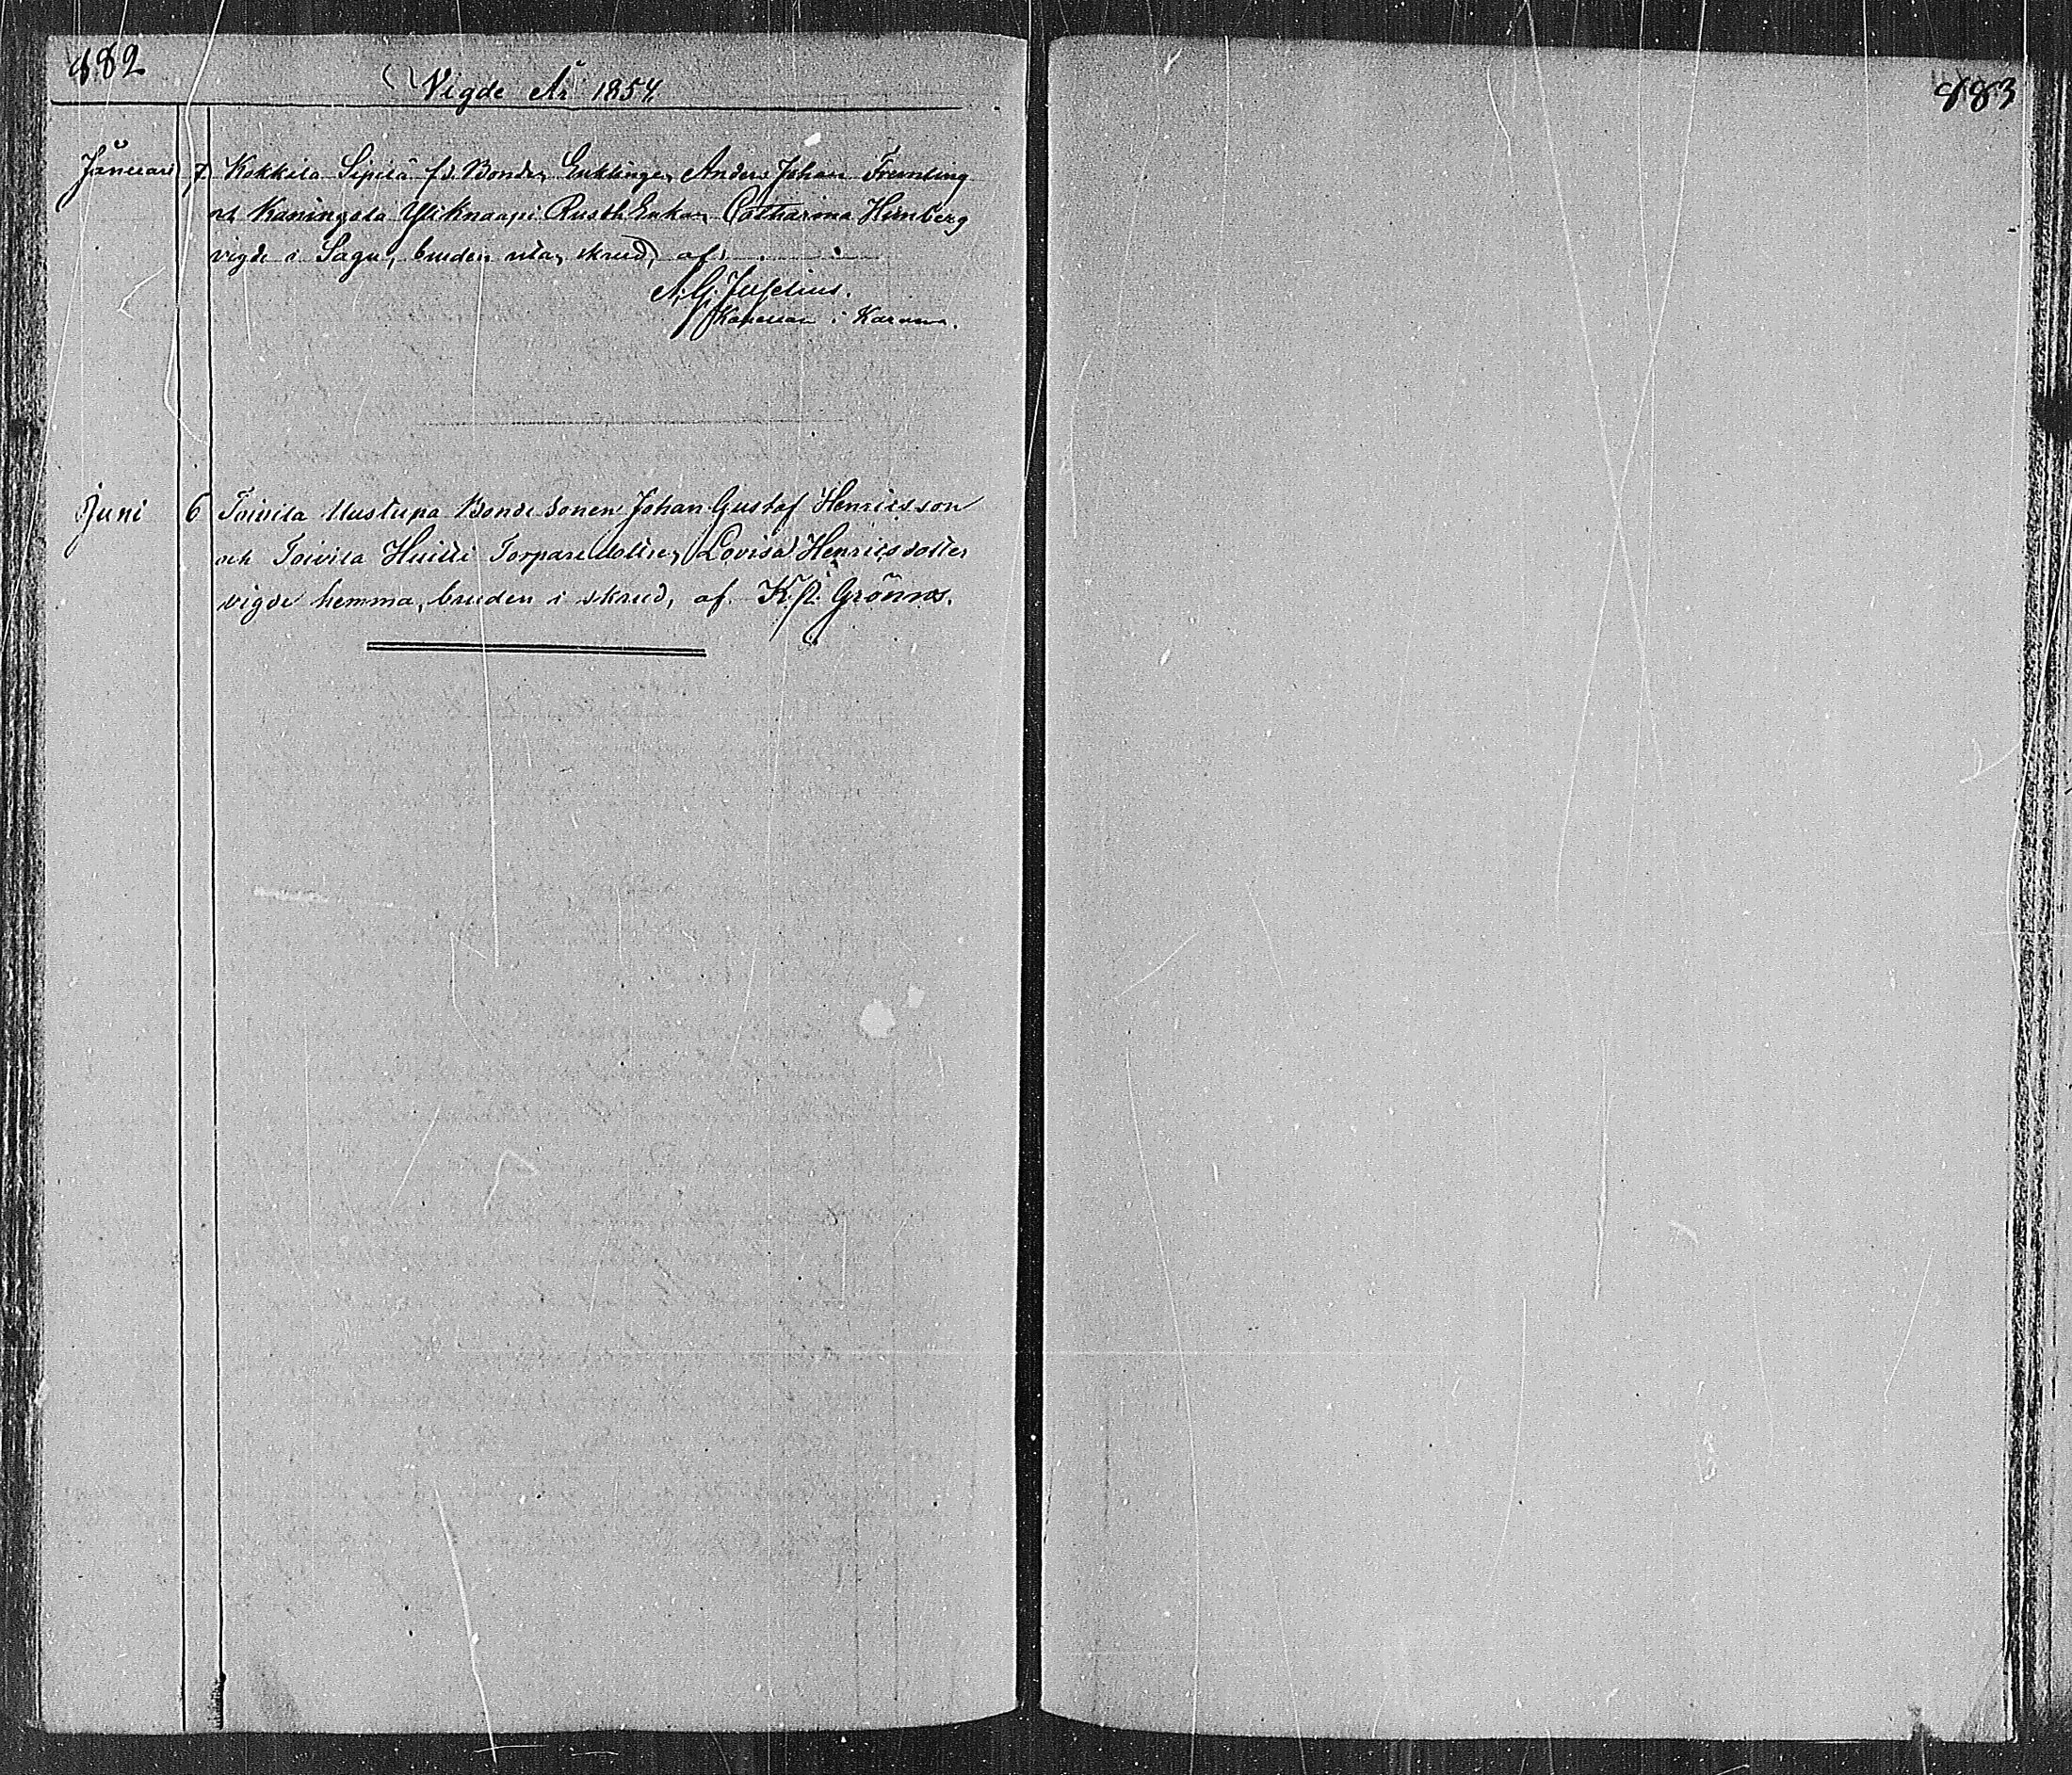 882
Vigde År 1854.
Januari 7 Kokkila Sipilä f.d. Bonden Enklingen Anders Johan Fremling
och Kaningola Yliknaapi Rusth Enkan Catharina Himberg
vigde i Sagu, bruden utan skrud, af:
A. G. Juselius.
i Karuna.
Juni 6 Toivila Uustupa Bonde Sonen Johan Gustaf Henricsson
och Toivila Huitti Torpare dottren Lovisa Henricsdotter
vigde hemma, bruden i skrud, af Grönros.
883